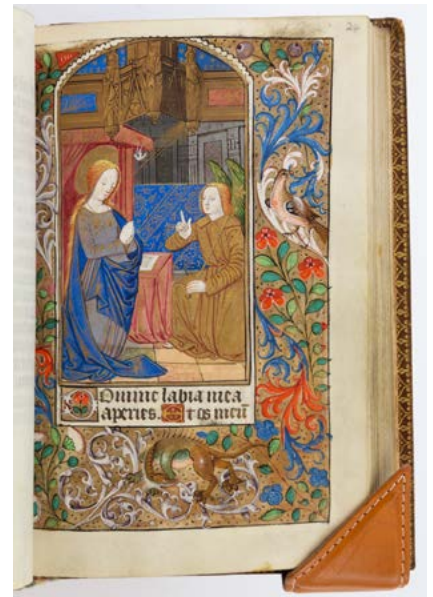 24
Domine labia mea
aperies. Et os meū